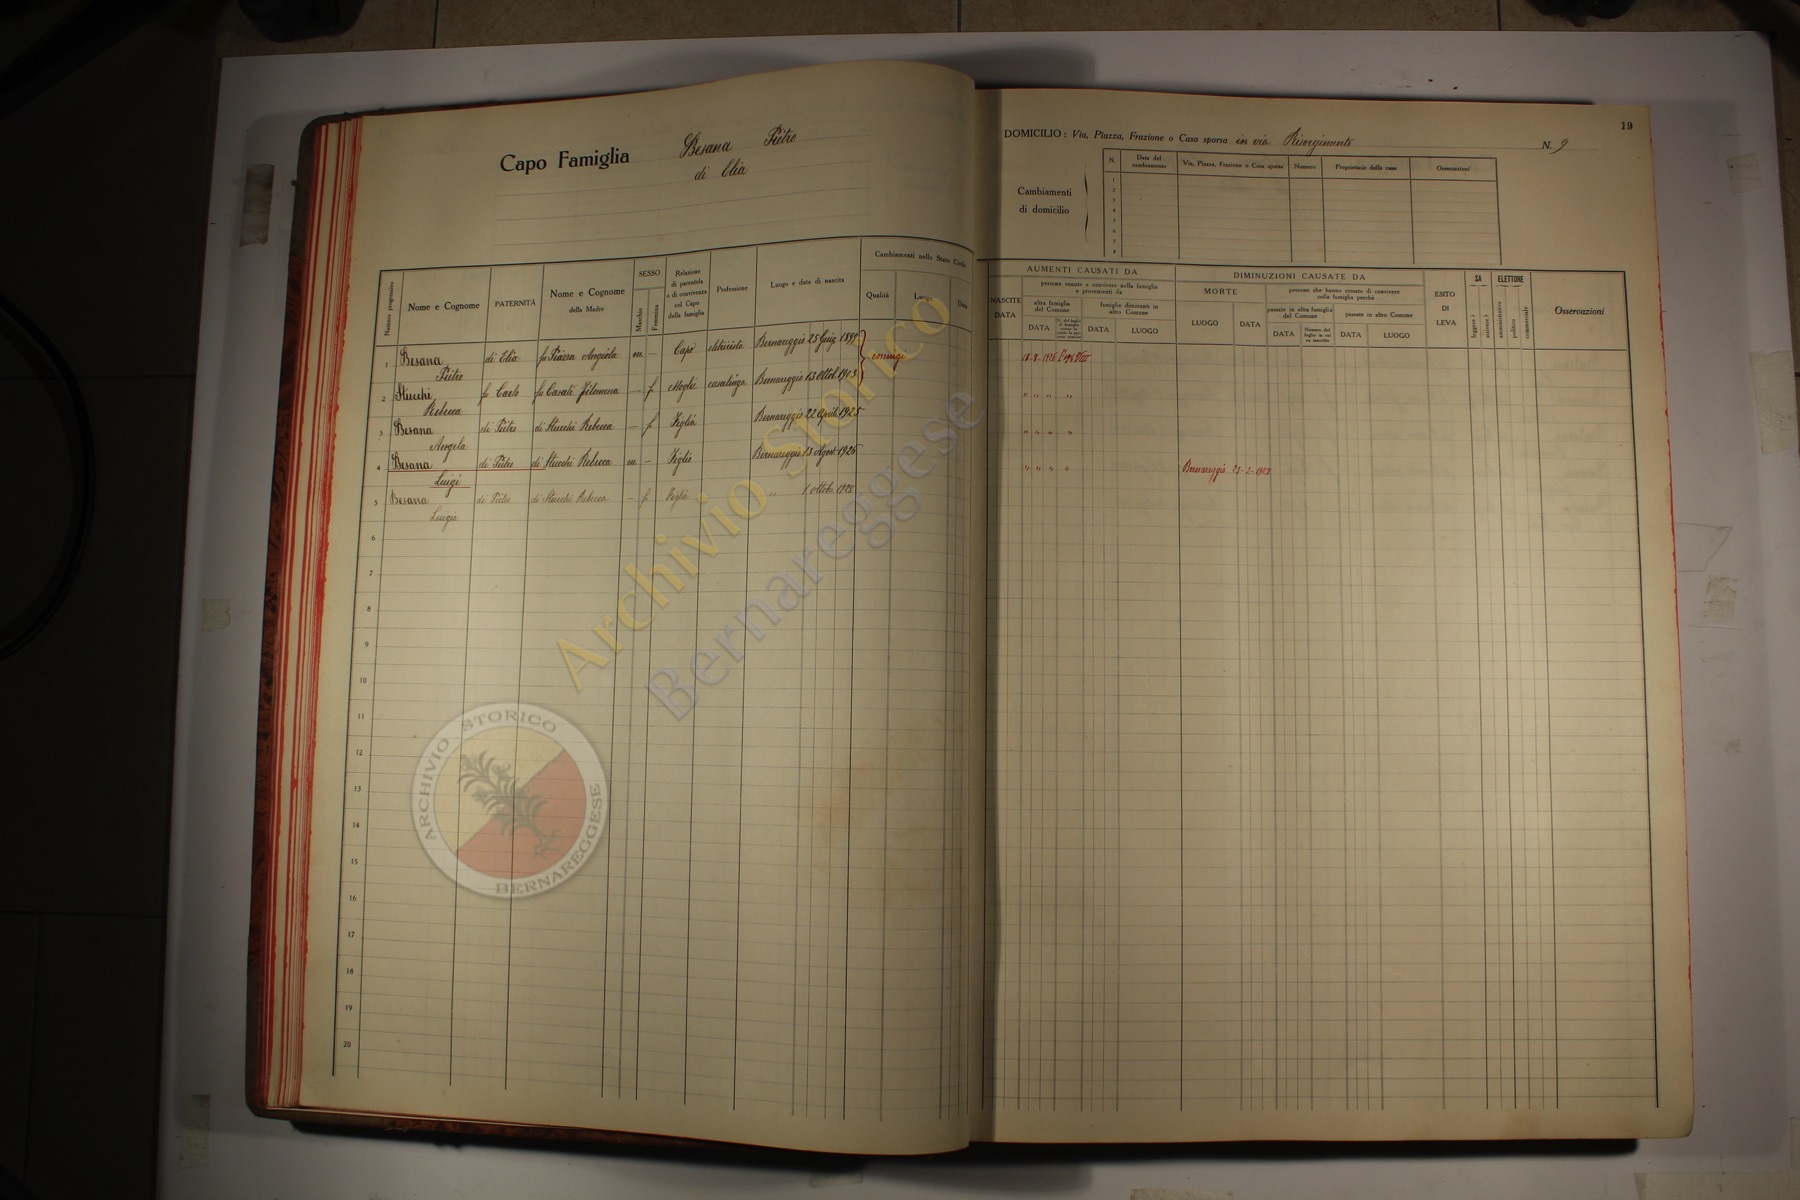 19
Capo Famiglia Besana Pietro
di Elia
DOMICILIO: Via, Piazza, Frazione o Casa sparsa in via Risorgimento N. 9
Cambiamenti
di domicilio
N. Data del cambiamento Via, Piazza, Frazione o Casa sparsa Numero Proprietario della casa Osservazioni
1
2
3
4
5
6
7
8
Numero progressivo
Nome e Cognome
PATERNITÀ
Nome e Cognome
della Madre
SESSO
Maschio
Femmina
Relazione
di parentela
o di convivenza
col Capo
della famiglia
Professione
Luogo e data di nascita
Cambiamenti nello Stato Civile
Qualità Luogo Data
AUMENTI CAUSATI DA
NASCITE
DATA
persone venute a convivere nella famiglia
e provenienti da
altra famiglia
del Comune
DATA
famiglie dimoranti in
altro Comune
DATA LUOGO
DIMINUZIONI CAUSATE DA
MORTE
LUOGO DATA
persone che hanno cessato di convivere
colla famiglia perchè
passate in altra famiglia
del Comune
DATA
passate in altro Comune
DATA LUOGO
ESITO
DI
LEVA
SA
leggere ?
scrivere ?
ELETTORE
amministrativo
politico
commerciale
Osservazioni
1 Besana di Elia fu Piazza Angiola m. — Capo Bernareggio 25 Giug 1897 coniugi
Pietro
2 Stucchi fu Carlo fu Casati Filomena — f. Moglie casalinga Bernareggio 13 Ottob. 1903 " " " "
Rebecca
3 Besana di Pietro di Stucchi Rebecca — f. Figlia Bernareggio 22 April. 1925 " " " "
Angela
4 Besana di Pietro di Stucchi Rebecca m. — Figlio Bernareggio 13 Agost 1926 " " " " Bernareggio 23-2-1928
Luigi
5 Besana di Pietro di Stucchi Rebecca — f. Figlia " 1 Ottob. 1928
Luigia
6
7
8
9
10
11
12
13
14
15
16
17
18
19
20
Archivio Storico
Bernareggese
ARCHIVIO STORICO
BERNAREGGESE